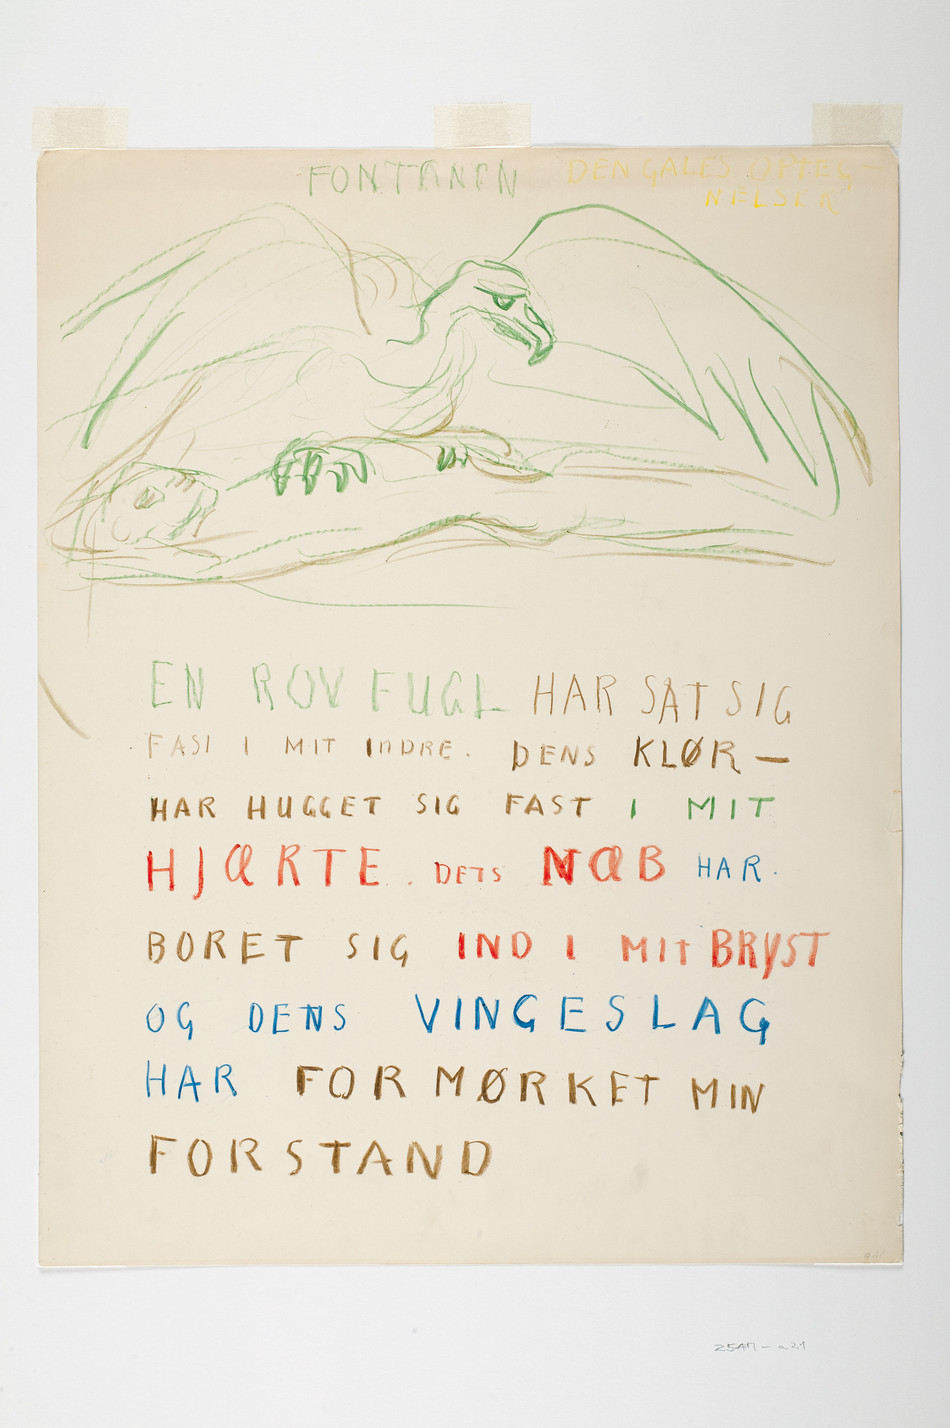 FONTANEN DEN GALES OPTEG-
NELSER
EN ROVFUGL HAR SAT SIG
FAST I MIT INDRE. DENS KLØR —
HAR HUGGET SIG FAST I MIT
HJÆRTE. DETS NÆB HAR.
BORET SIG IND I MIT BRYST
OG DENS VINGESLAG
HAR FORMØRKET MIN
FORSTAND